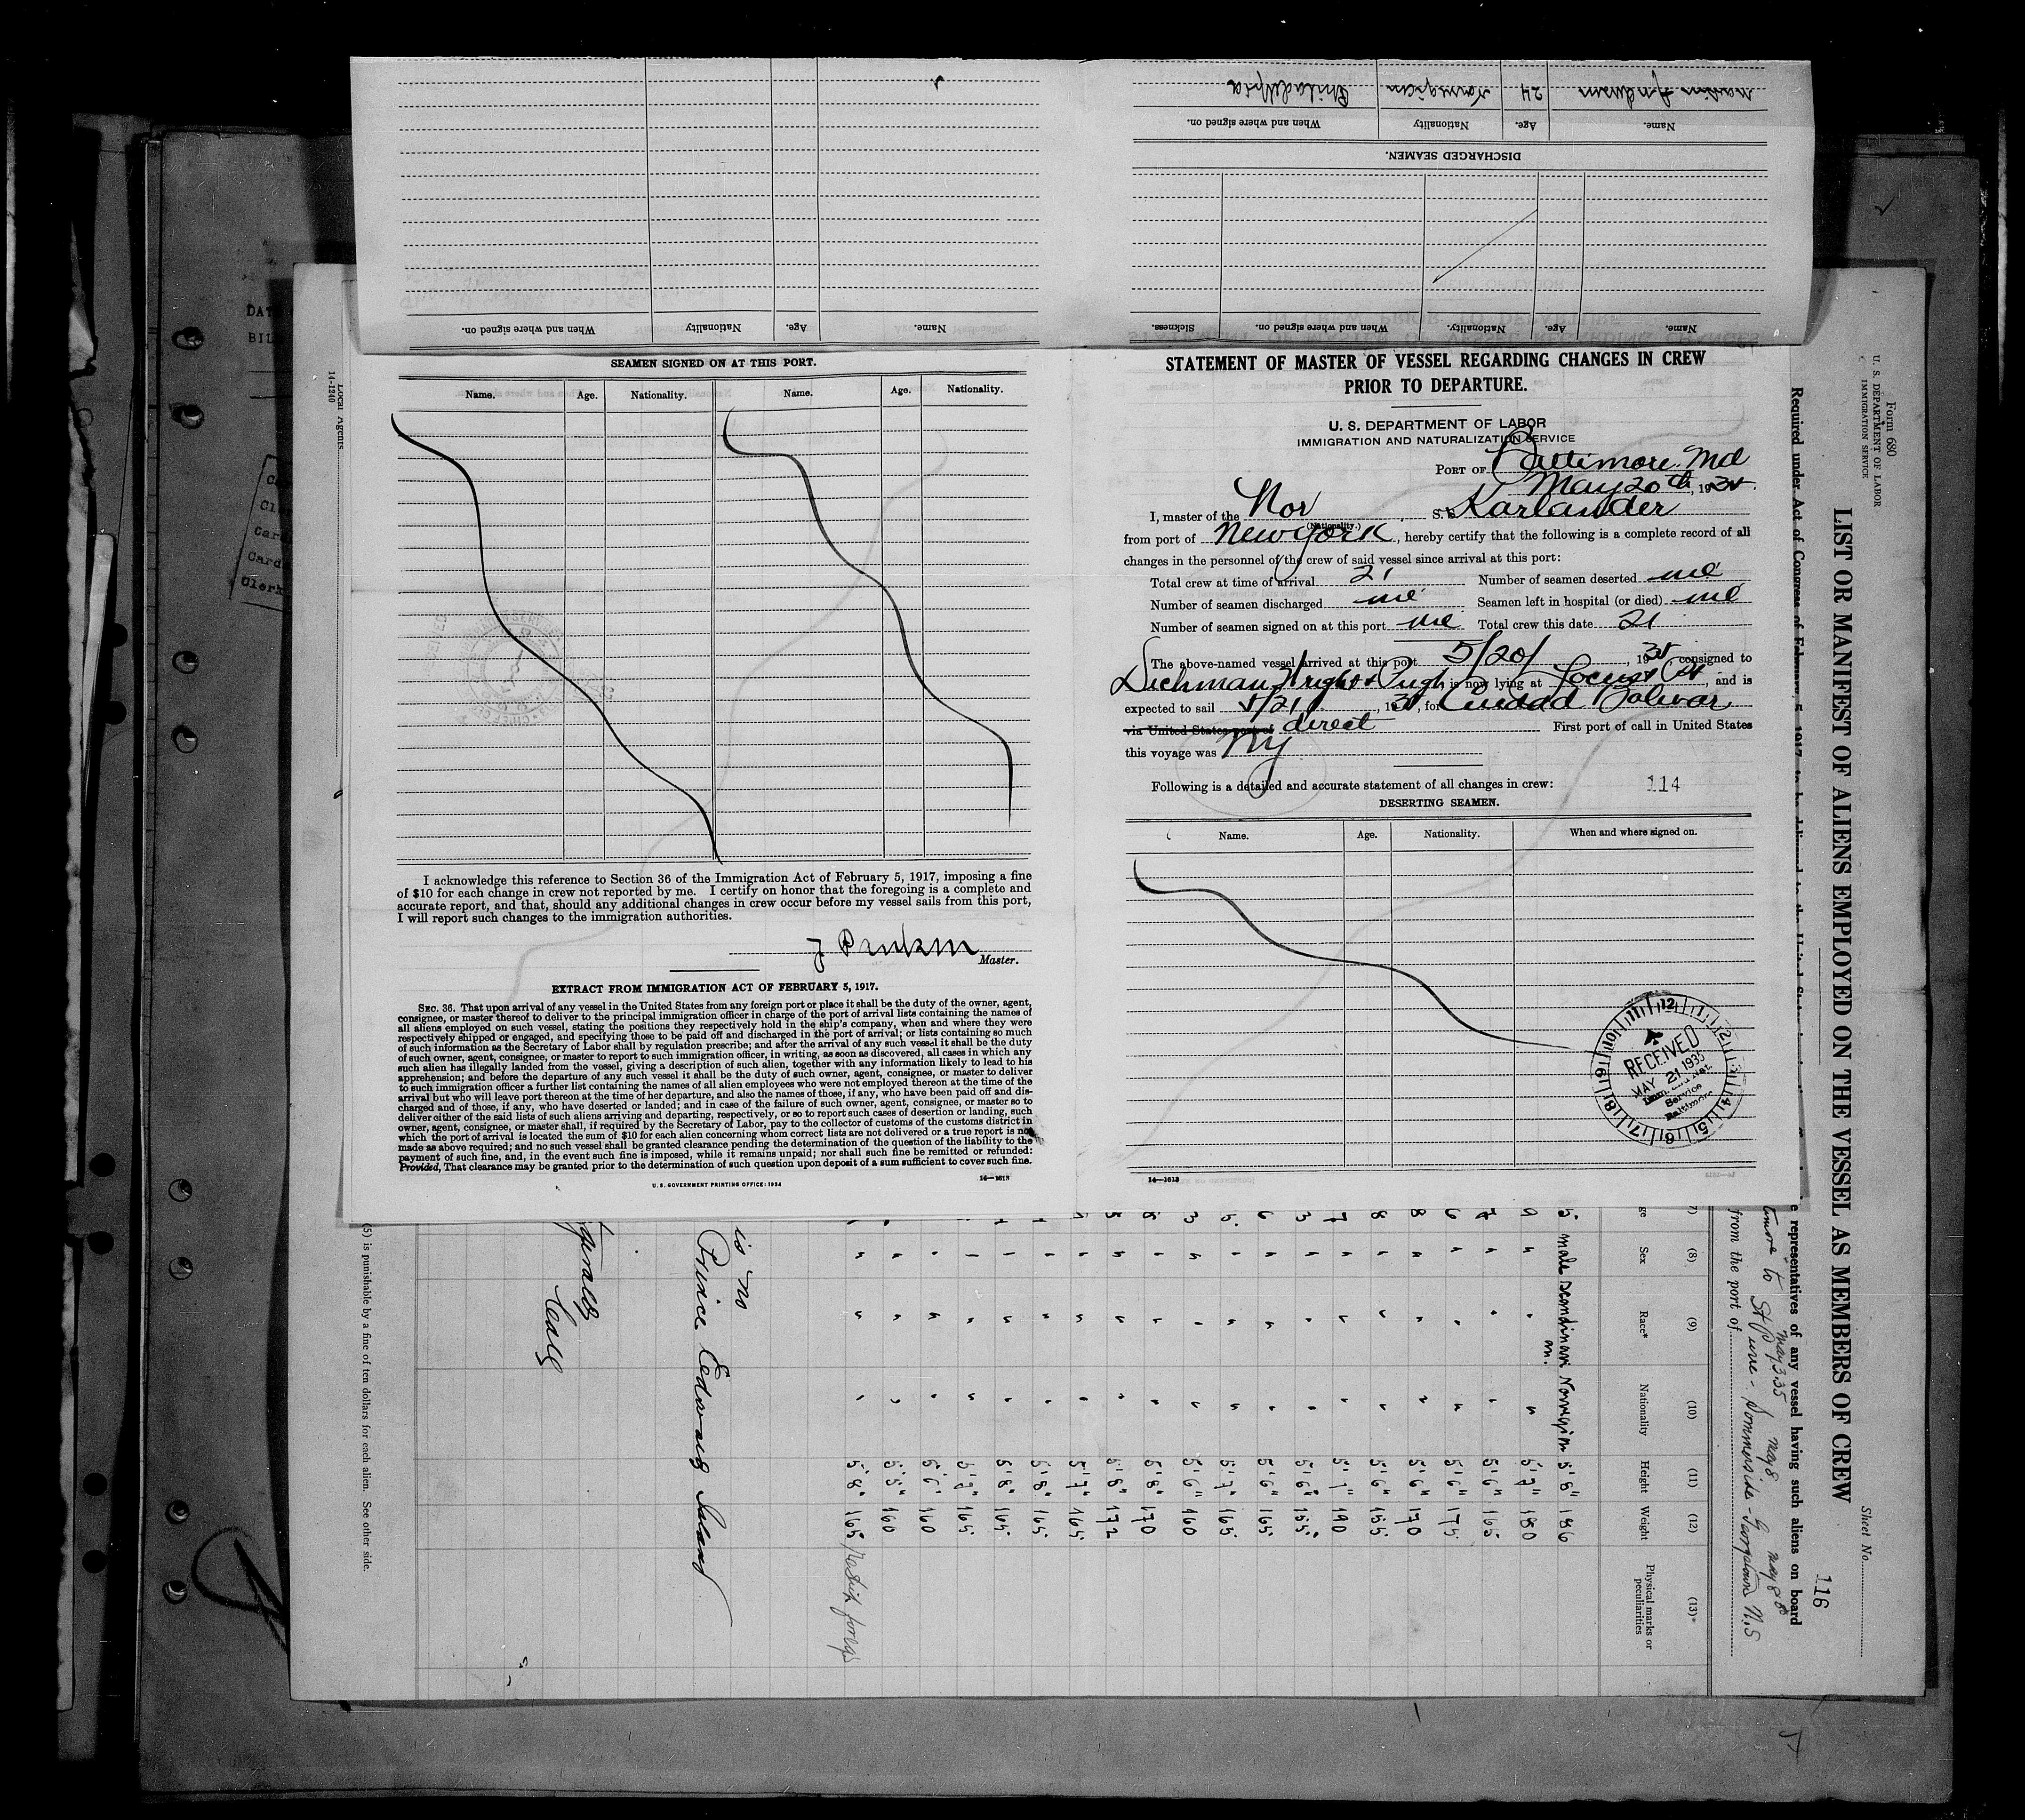 Martin Andersen 24 Norwegian Philadelphia
Name. Age. Nationality When and where signed on.
DISCHARGED SEAMEN.
Name. Age. Nationality. When and where signed on. Sickness.
Name. Age. Nationality When and where signed on.
SEAMEN SIGNED ON AT THIS PORT.
Name. Age. Nationality. Name. Age. Nationality.
I acknowledge this reference to Section 36 of the Immigration Act of February 5, 1917, imposing a fine
of $10 for each change in crew not reported by me. I certify on honor that the foregoing is a complete and
accurate report, and that, should any additional changes in crew occur before my vessel sails from this port,
I will report such changes to the immigration authorities.
Master.
EXTRACT FROM IMMIGRATION ACT OF FEBRUARY 5, 1917.
SEC. 36. That upon arrival of any vessel in the United States from any foreign port or place it shall be the duty of the owner, agent,
consignee, or master thereof to deliver to the principal immigration officer in charge of the port of arrival lists containing the names of
all aliens employed on such vessel, stating the positions they respectively hold in the ship's company, when and where they were
respectively shipped or engaged, and specifying those to be paid off and discharged in the port of arrival; or lists containing so much
of such information as the Secretary of Labor shall by regulation prescribe; and after the arrival of any such vessel it shall be the duty
of such owner, agent, consignee, or master to report to such immigration officer, in writing, as soon as discovered, all cases in which any
such alien has illegally landed from the vessel, giving a description of such alien, together with any information likely to lead to his
apprehension; and before the departure of any such vessel it shall be the duty of such owner, agent, consignee, or master to deliver
to such immigration officer a further list containing the names of all alien employees who were not employed thereon at the time of the
arrival but who will leave port thereon at the time of her departure, and also the names of those, if any, who have been paid off and dis-
charged and of those, if any, who have deserted or landed; and in case of the failure of such owner, agent, consignee, or master so to
deliver either of the said lists of such aliens arriving and departing, respectively, or so to report such cases of desertion or landing, such
owner, agent, consignee, or master shall, if required by the Secretary of Labor, pay to the collector of customs of the customs district in
which the port of arrival is located the sum of $10 for each alien concerning whom correct lists are not delivered or a true report is not
made as above required; and no such vessel shall be granted clearance pending the determination of the question of the liability to the
payment of such fine, and, in the event such fine is imposed, while it remains unpaid; nor shall such fine be remitted or refunded:
Provided, That clearance may be granted prior to the determination of such question upon deposit of a sum sufficient to cover such fine.
U. S. GOVERNMENT PRINTING OFFICE: 1934 14—1613
STATEMENT OF MASTER OF VESSEL REGARDING CHANGES IN CREW
PRIOR TO DEPARTURE.
U. S. DEPARTMENT OF LABOR
IMMIGRATION AND NATURALIZATION SERVICE
PORT OF Baltimore. Md
May 20th, 1935.
I, master of the Nor (Nationality.), S. S. Karlander
from port of New York, hereby certify that the following is a complete record of all
changes in the personnel of the crew of said vessel since arrival at this port:
Total crew at time of arrival 21 Number of seamen deserted nil
Number of seamen discharged nil Seamen left in hospital (or died) nil
Number of seamen signed on at this port nil Total crew this date 21
The above-named vessel arrived at this port 5/20/, 1935, consigned to
Dichman Wright & Pugh is now lying at Locust Pt, and is
expected to sail 5/21, 1935, for Ciudad Bolivar,
via United States port of direct First port of call in United States
this voyage was NY
Following is a detailed and accurate statement of all changes in crew: 114
DESERTING SEAMEN.
Name. Age. Nationality. When and where signed on.
RECEIVED
MAY 21 1935
Imm. and Nat.
Service
Baltimore
14—1613
Form 680
U. S. DEPARTMENT OF LABOR
IMMIGRATION SERVICE
Sheet No.
LIST OR MANIFEST OF ALIENS EMPLOYED ON THE VESSEL AS MEMBERS OF CREW
116
Required under Act of Congress of February 5, 1917, to be delivered to the United States
representatives of any vessel having such aliens on board
May 3 35 May 8 May 8
to St Pierre - Summerside - Georgetown N.S
from the port of
(8) (9) (10) (11) (12) (13)
Sex Race* Nationality Height Weight Physical marks or peculiarities
male scandinavian Norwegian 5'8" 186
5'7" 180
5'6" 165
5'6" 175
5'6" 170
5'6" 155
5'7" 190
5'6" 155
5'6" 165
5'7" 165
5'6" 160
5'8" 170
5'8" 172
5'7" 165
5'8" 165
5'8" 165
5'7" 165
5'6" 160
5'5" 160
5'8" 165
is no
Prince Edward Island
(5) is punishable by a fine of ten dollars for each alien. See other side.
Local Agents
14-1240